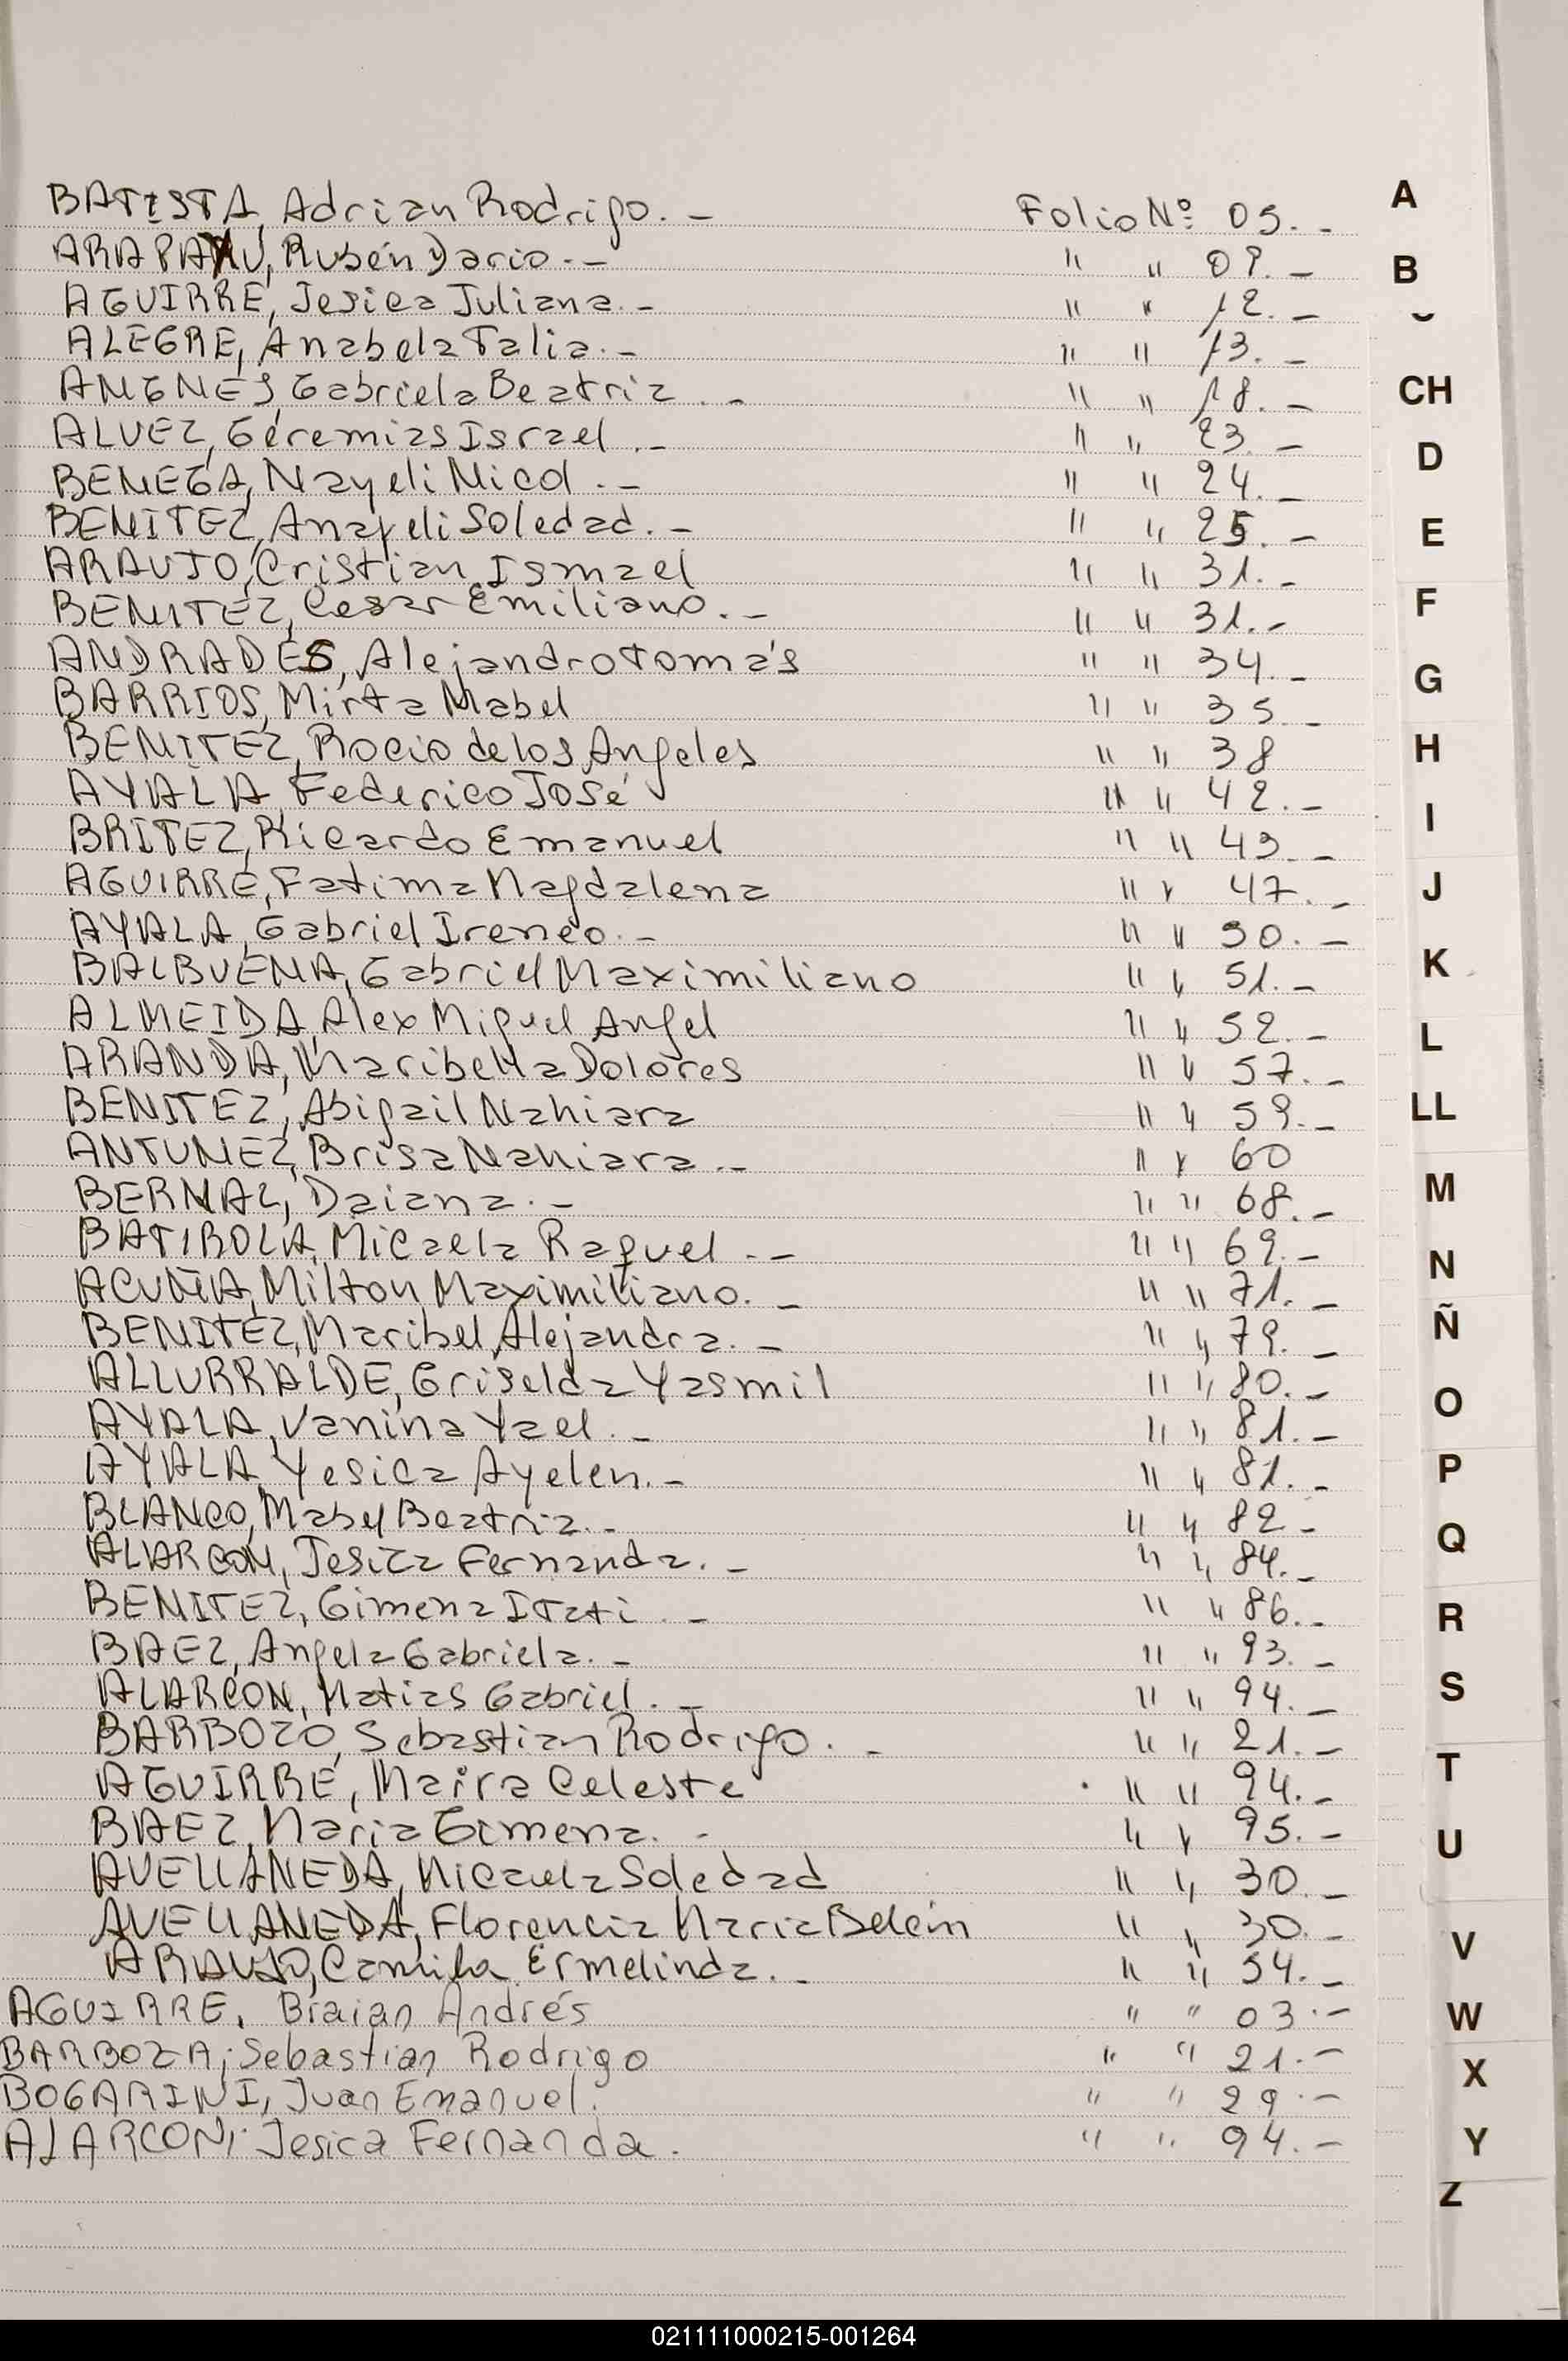 BATISTA, Adrian Rodrigo. - Folio Nº 05. -
Rubén Dario. - " " 09. -
AGUIRRE, Jesica Juliana. - " " 12. -
ALEGRE, Anabela Talia. - " " 13. -
Gabriela Beatriz. - " " 18. -
ALVEZ, Géremias Israel. - " " 23. -
BENEGA, Nayeli Micol. - " " 24. -
BENITEZ, Anayeli Soledad. - " " 25. -
ARAUJO, Cristian Ismael " " 31. -
BENITEZ, Cesar Emiliano. - " " 31. -
ANDRADES, Alejandro Tomás " " 34. -
BARRIOS, Mirta Mabel " " 35. -
BENITEZ, Rocio de los Angeles " " 38
AYALA, Federico José " " 42. -
BRITEZ, Ricardo Emanuel " " 43. -
AGUIRRE, Fatima Magdalena " " 47. -
AYALA, Gabriel Ireneo. - " " 50. -
BALBUENA, Gabriel Maximiliano " " 51. -
ALMEIDA, Alex Miguel Angel " " 52. -
ARANDA, Maribella Dolores " " 57. -
BENITEZ, Abigail Nahiara " " 59. -
ANTUNEZ, Brisa Nahiara. - " " 60
BERNAL, Daiana. - " " 68. -
BATIROLA, Micaela Raquel. - " " 69. -
ACUÑA, Milton Maximiliano. - " " 71. -
BENITEZ, Maribel Alejandra. - " " 79. -
ALLURRALDE, Griselda Yasmil " " 80. -
AYALA, Vanina Yael. - " " 81. -
AYALA, Yesica Ayelen. - " " 81. -
BLANCO, Mabel Beatriz. - " " 82 -
ALARCON, Jesica Fernanda. - " " 84. -
BENITEZ, Gimena Itati. - " " 86. -
BAEZ, Angela Gabriela. - " " 93. -
ALARCON, Matias Gabriel. - " " 94. -
BARBOZO, Sebastian Rodrigo. - " " 21. -
AGUIRRE, Maira Celeste " " 94. -
BAEZ, Maria Gimena. - " " 95. -
AVELLANEDA, Micaela Soledad " " 30. -
AVELLANEDA, Florencia Maria Belén " " 30. -
ARAUJO, Camila Ermelinda. - " " 54. -
AGUIRRE, Braian Andrés " " 03. -
BARBOZA; Sebastian Rodrigo " " 21. -
BOGARINI, Juan Emanuel. " " 29. -
ALARCON; Jesica Fernanda. " " 94. -
A
B
CH
D
E
F
G
H
I
J
K
L
LL
M
N
Ñ
O
P
Q
R
S
T
U
V
W
X
Y
Z
021111000215-001264